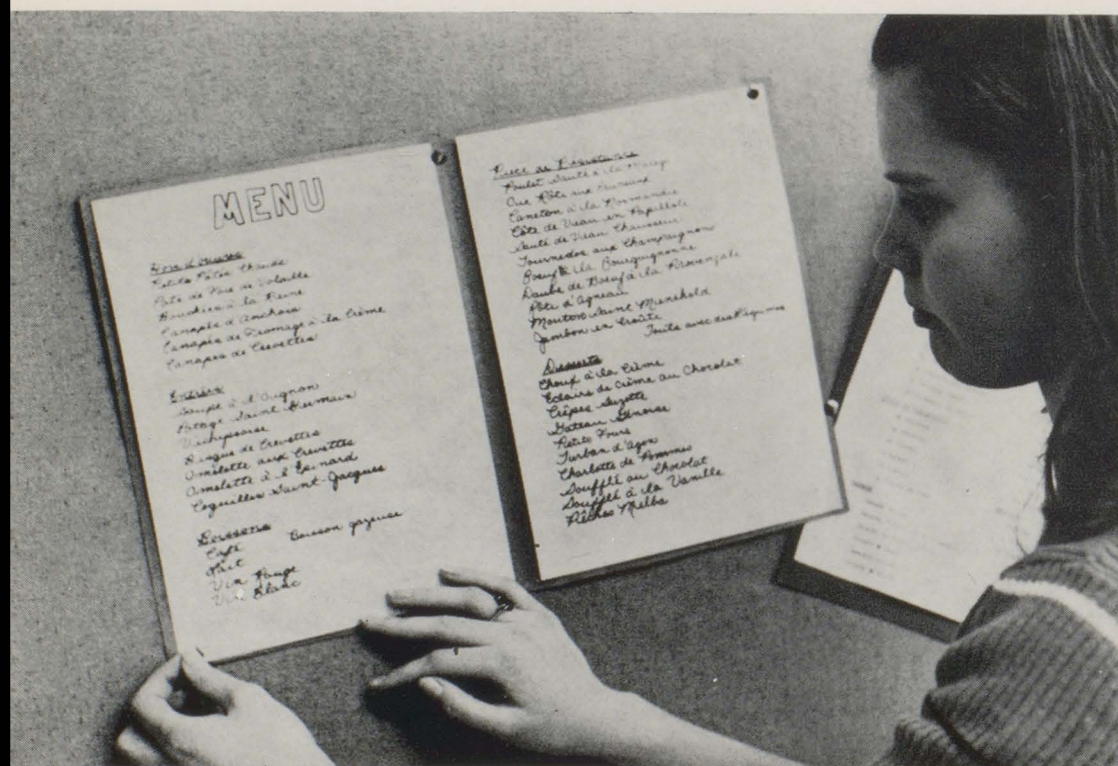 MENU
Hors d'oeuvres
Petits Pâtés Chauds
Pâté de Foie de Volaille
Bouchées à la Reine
Canapés d'Anchois
Canapés de Fromage à la Crème
Canapés de Crevettes
Entrées
Soupe à l'Oignon
Potage Saint Germain
Vichyssoise
Bisque de Crevettes
Omelette aux Crevettes
Omelette à l'Épinard
Coquilles Saint-Jacques
Boissons
Café Boisson gazeuse
Lait
Vin Rouge
Vin Blanc
Pièce de Résistance
Poulet Sauté à la
Oie Rôti aux
Caneton à la Normandie
Côte de Veau en Papillote
Sauté de Veau Chausseur
Tournedos aux Champaignon
Boeuf à la Bourguignonne
Daube de Boeuf à la Provençale
Rôti d'Agneau
Mouton Saint Menehold
Jambon en Croûte
Touts avec des Légumes
Desserts
Choux à la Crème
Eclairs de Crème au Chocolat
Crêpes Suzette
Gateau Génoise
Petits Fours
Turban d'Agen
Charlotte de Pommes
Soufflé au Chocolat
Soufflé à la Vanille
Pêches Melba